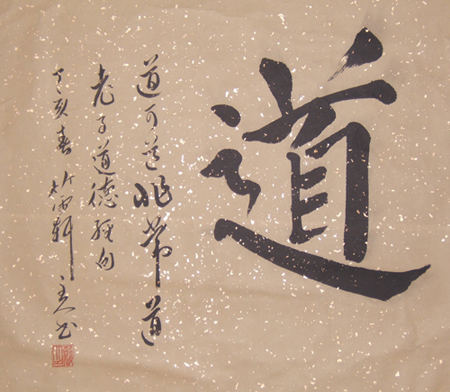 道
道可道非常道
老子道德經句
丁亥春竹雨軒主书